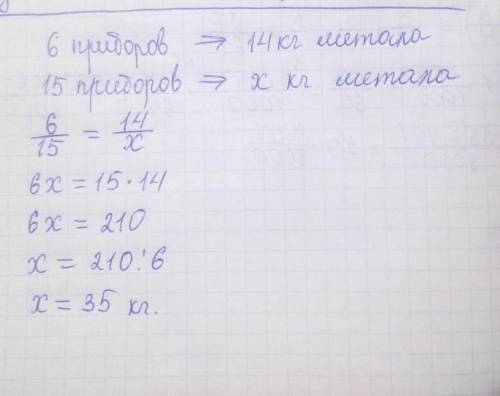 6 приборов ⇒ 14 кг метала
15 приборов ⇒ х кг метала
6/15 = 14/х
6х = 15 · 14
6х = 210
х = 210 : 6
х = 35 кг.